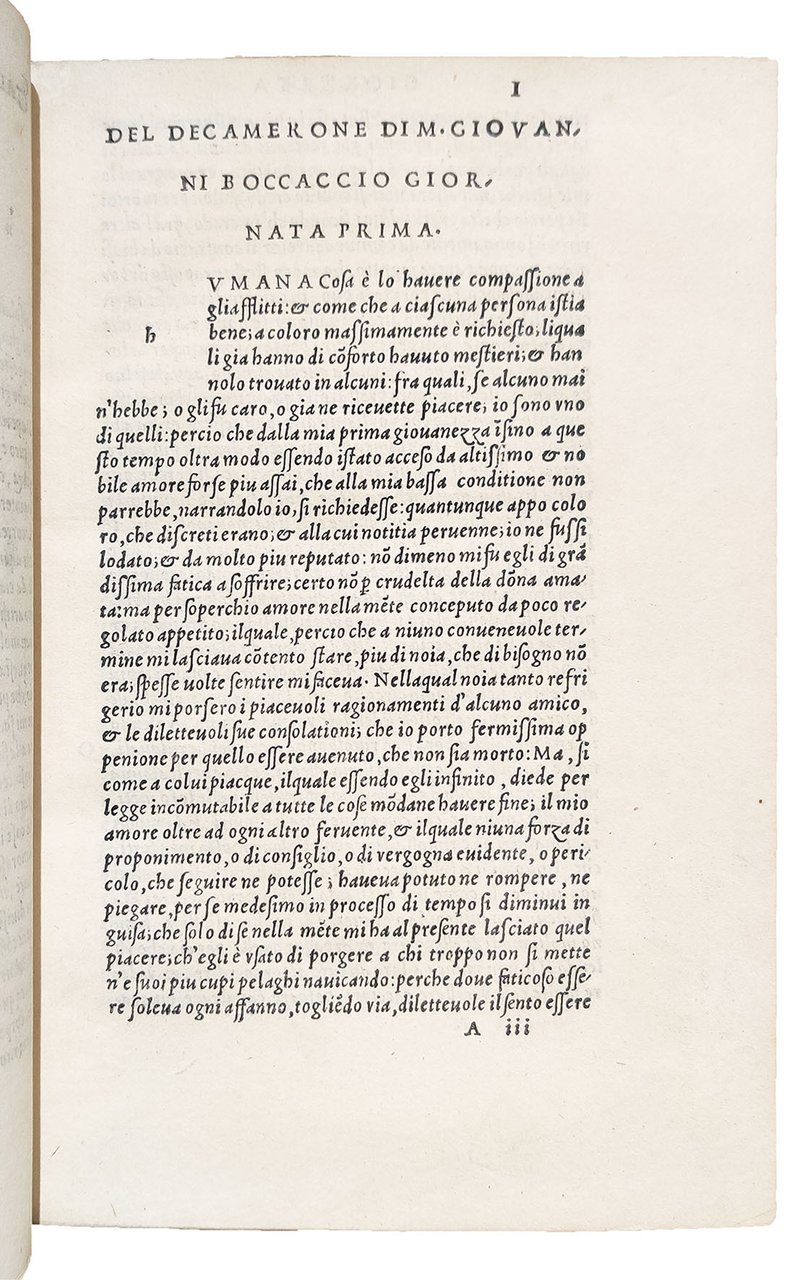 I
DEL DECAMERONE DI M. GIOVAN,
NI BOCCACCIO GIOR,
NATA PRIMA.
VMANA Cosa è lo hauere compassione a
gli afflitti: & come che a ciascuna persona istia
h
bene; a coloro massimamente è richiesto; liqua
li gia hanno di cõforto hauuto mestieri; & han
nolo trouato in alcuni: fra quali, se alcuno mai
n'hebbe; o gli fu caro, o gia ne riceuette piacere; io sono vno
di quelli: percio che dalla mia prima giouanezza ĩsino a que
sto tempo oltra modo essendo istato acceso da altissimo & no
bile amore forse piu assai, che alla mia bassa conditione non
parrebbe, narrandolo io, si richiedesse: quantunque appo colo
ro, che discreti erano; & alla cui notitia peruenne; io ne fussi
lodato; & da molto piu reputato: nõ dimeno mi fu egli di grã
dissima fatica a soffrire; certo nõ ꝑ crudelta della dõna ama,
ta: ma per soperchio amore nella mẽte conceputo da poco re,
golato appetito; ilquale, percio che a niuno conueneuole ter,
mine mi lasciaua cõtento stare, piu di noia, che di bisogno nõ
era; spesse uolte sentire mi faceua. Nellaqual noia tanto refri
gerio mi porsero i piaceuoli ragionamenti d'alcuno amico,
& le diletteuoli sue consolationi; che io porto fermissima op
penione per quello essere auenuto, che non sia morto: Ma, si
come a colui piacque, ilquale essendo egli infinito, diede per
legge incõmutabile a tutte le cose mõdane hauere fine; il mio
amore oltre ad ogni altro feruente, & ilquale niuna forza di
proponimento, o di consiglio, o di vergogna euidente, o peri,
colo, che seguire ne potesse; haueua potuto ne rompere, ne
piegare, per se medesimo in processo di tempo si diminui in
guisa; che solo di se nella mẽte mi ha al presente lasciato quel
piacere; ch'egli è vsato di porgere a chi troppo non si mette
n'e suoi piu cupi pelaghi nauicando: perche doue faticoso esse,
re soleua ogni affanno, togliẽdo via, diletteuole il sento essere
A iii